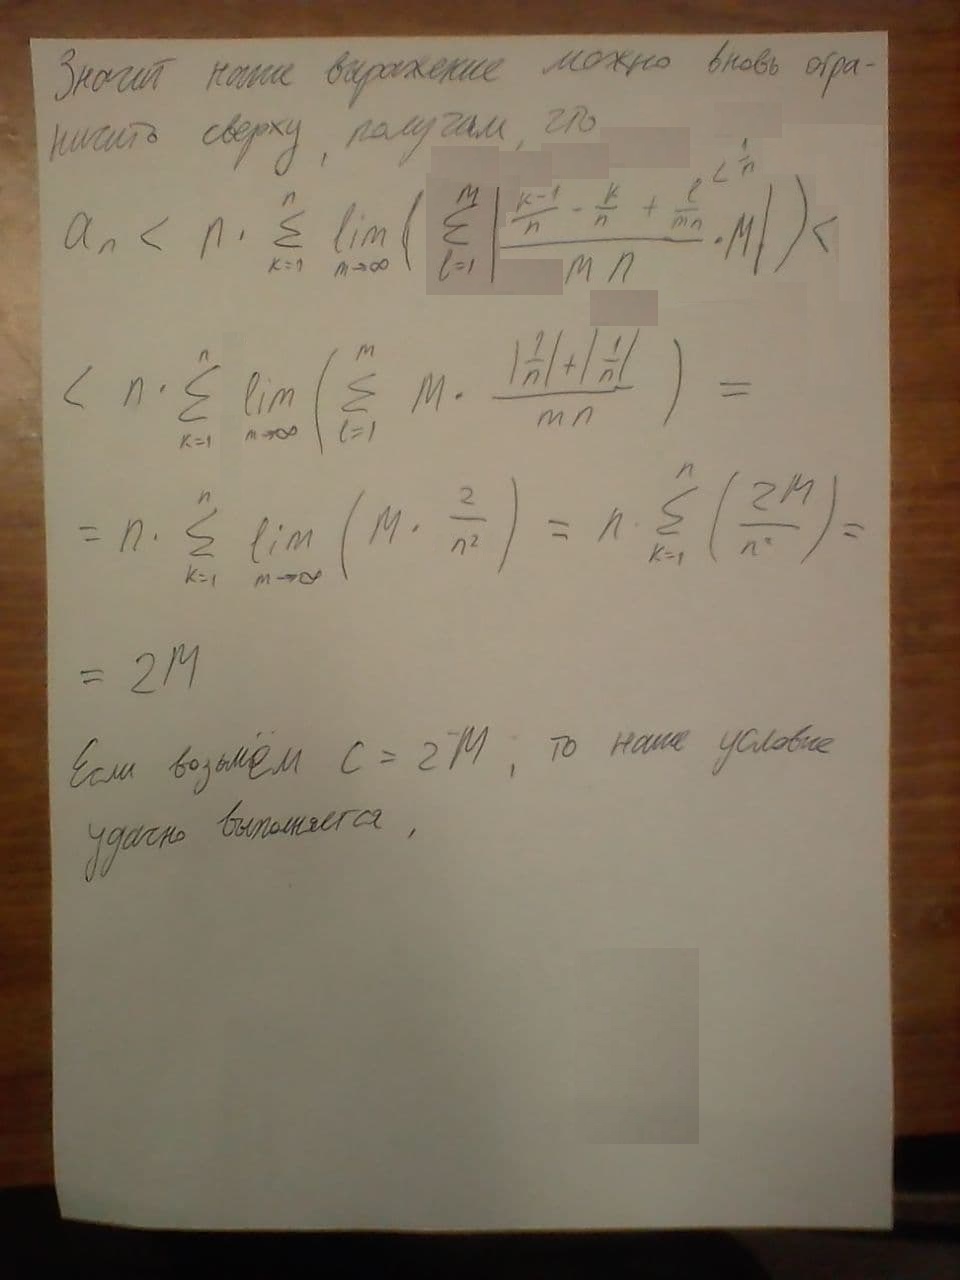 Значит наше выражение можно вновь огра-
ничить сверху, получам, что
aₙ < n · Σ_{k=1}^{n} lim_{m→∞} ( Σ_{l=1}^{M} | ((k-1)/n - k/n + l/(mn)) / (mn) · M | ) <
< 1/n
< n · Σ_{k=1}^{n} lim_{m→∞} ( Σ_{l=1}^{m} M · (|1/n| + |1/n|) / (mn) ) =
= n · Σ_{k=1}^{n} lim_{m→∞} ( M · 2/n² ) = n · Σ_{k=1}^{n} ( 2M/n² ) =
= 2M
Если возьмём C = 2M, то наше условие
удачно выполняется,